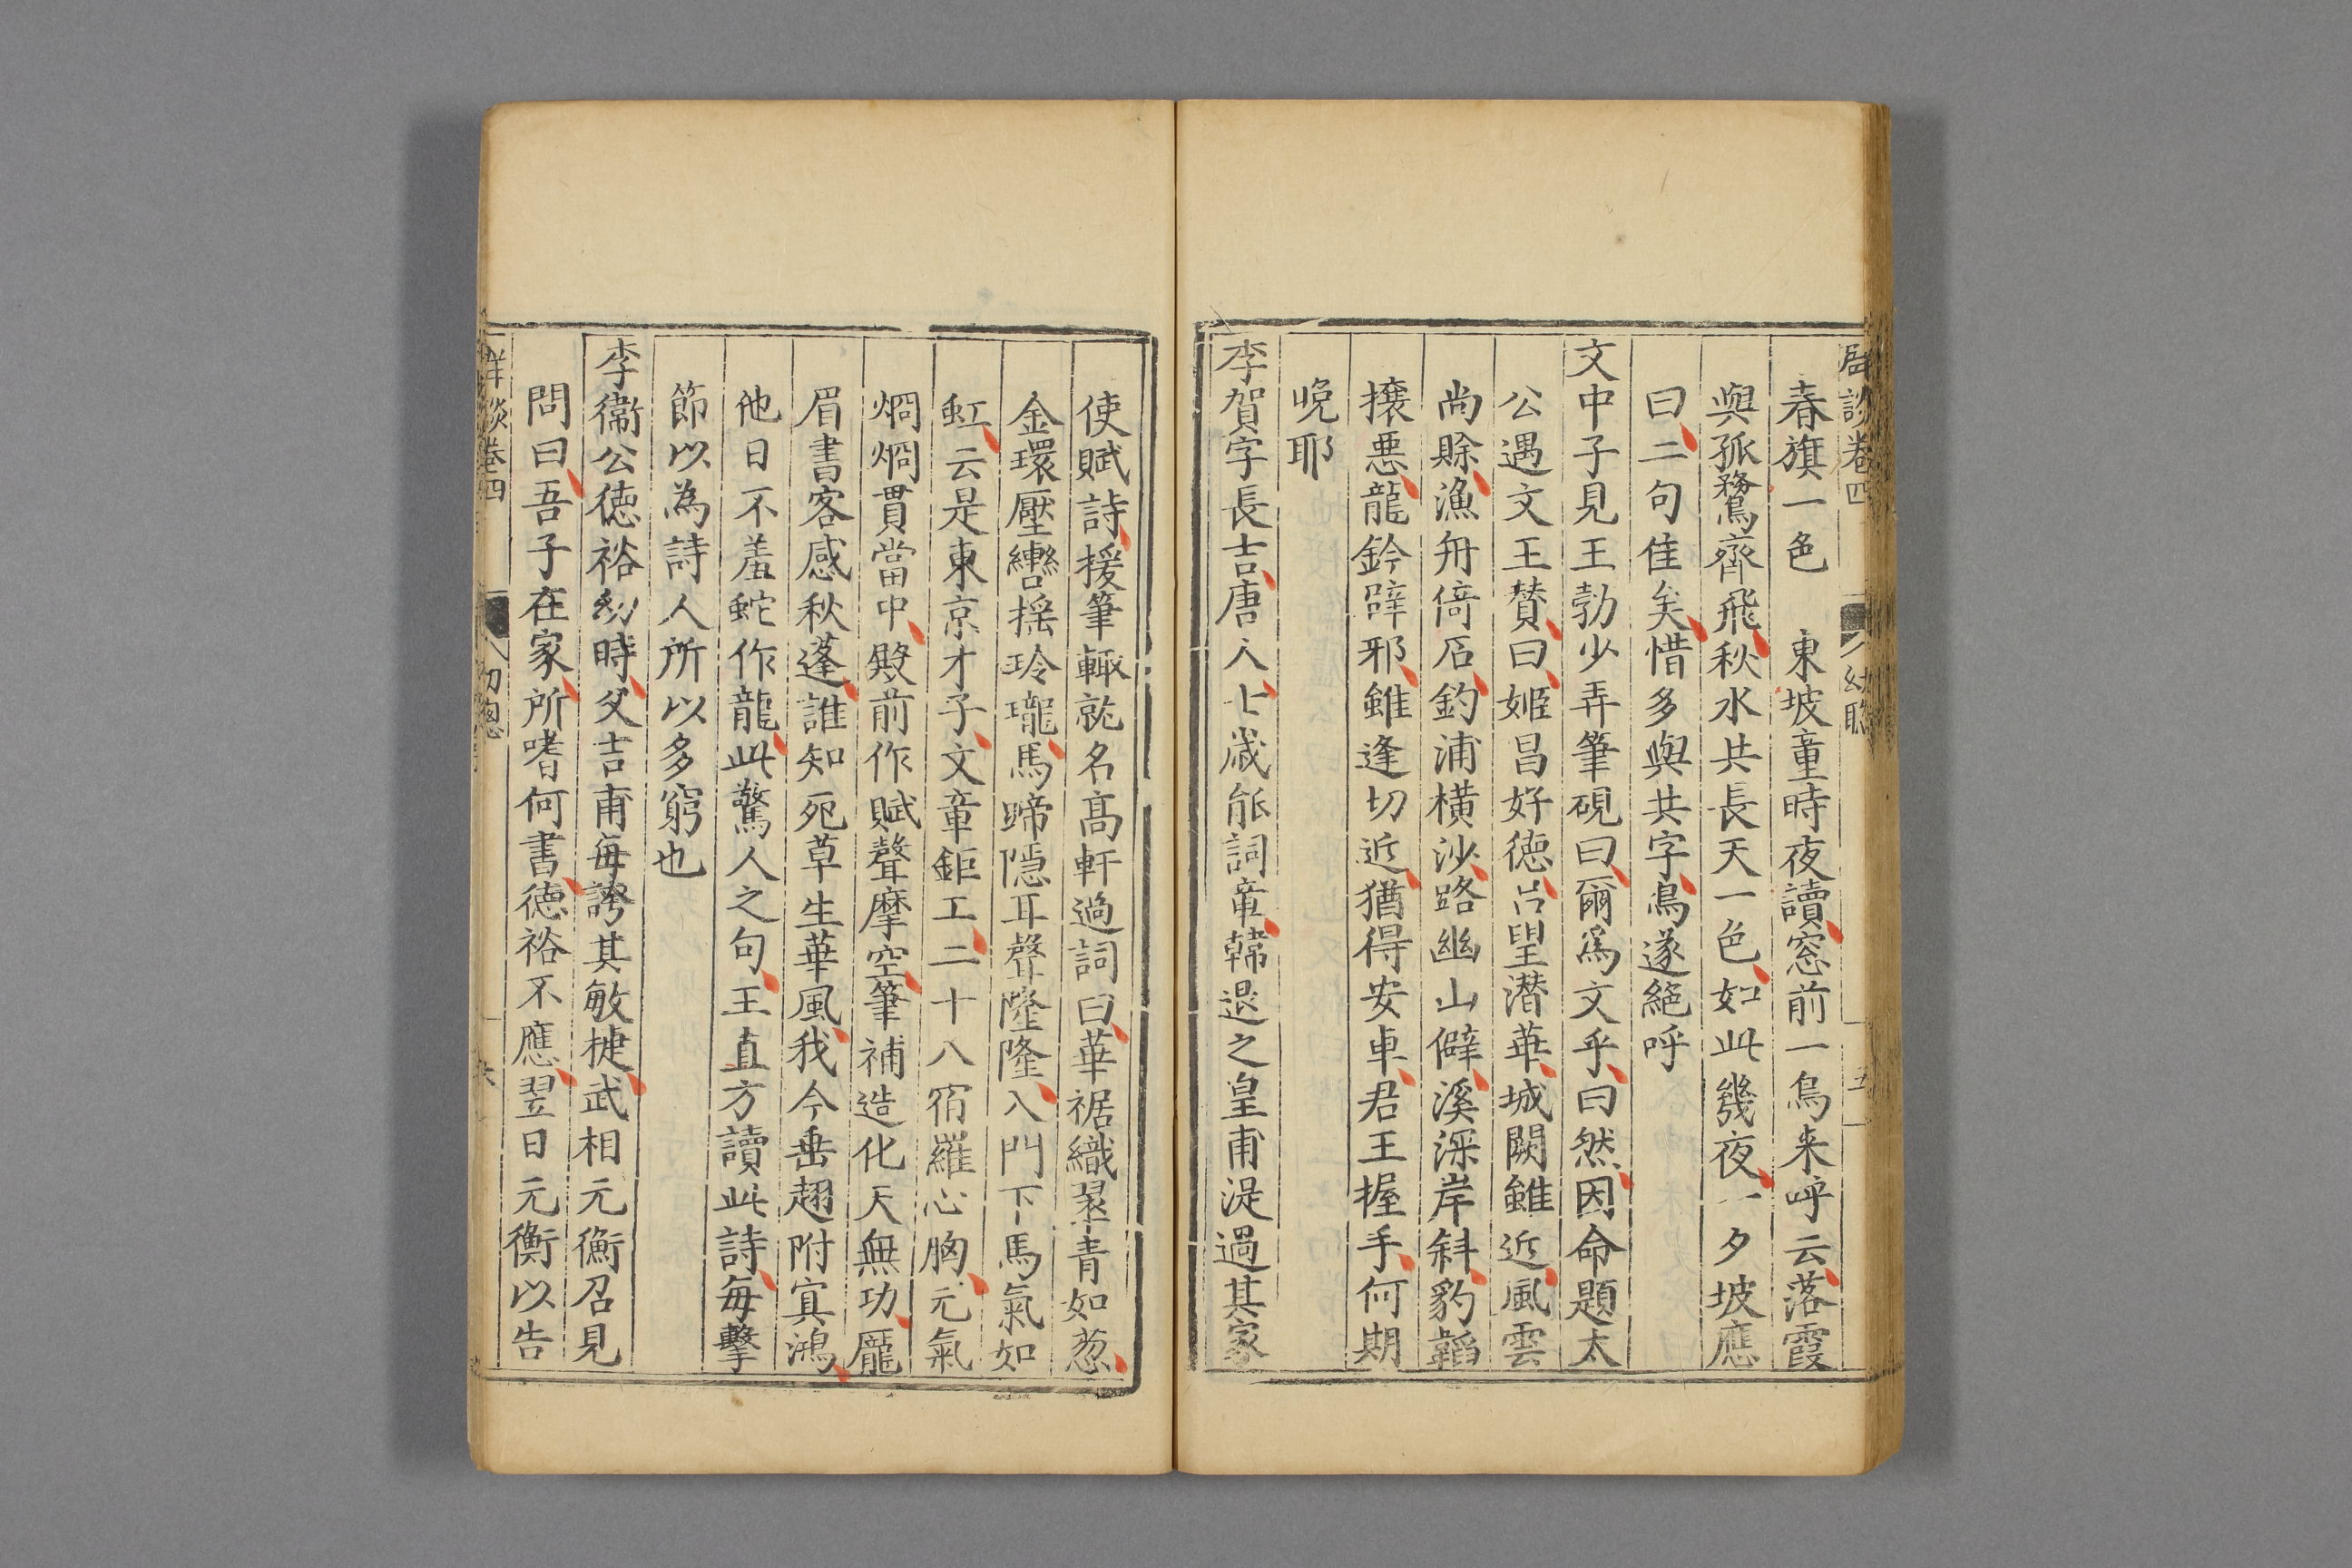 群談卷四 幼聡 五
春旗一色 東坡童時夜讀窓前一鳥来呼云落霞
與孤鶩齊飛秋水共長天一色如此幾夜一夕坡應
曰二句佳矣惜多與共字鳥遂絕呼
文中子見王勃少弄筆硯曰爾爲文乎曰然因命題太
公遇文王賛曰姬昌好德吕望潜華城闕雖近風雲
尚賖漁舟倚石釣浦橫沙路幽山僻溪深岸斜豹韜
攘惡龍鈐辟邪雖逢切近猶得安車君王握手何期
晚耶
李賀字長吉唐人七歲能詞章韓退之皇甫湜過其家
使賦詩援筆輒就名髙軒過詞曰華裾織翠青如葱
金環壓轡揺玲瓏馬蹄隠耳聲隆隆入門下馬氣如
虹云是東京才子文章鉅工二十八宿羅心胸元氣
烱烱貫當中殿前作賦聲摩空筆補造化天無功龐
眉書客感秋蓬誰知死草生華風我今垂翅附冥鴻
他日不羞蛇作龍此驚人之句王直方讀此詩每擊
節以為詩人所以多窮也
李衞公德裕幼時父吉甫每誇其敏捷武相元衡召見
問曰吾子在家所嗜何書德裕不應翌日元衡以告
群談卷四 幼聡